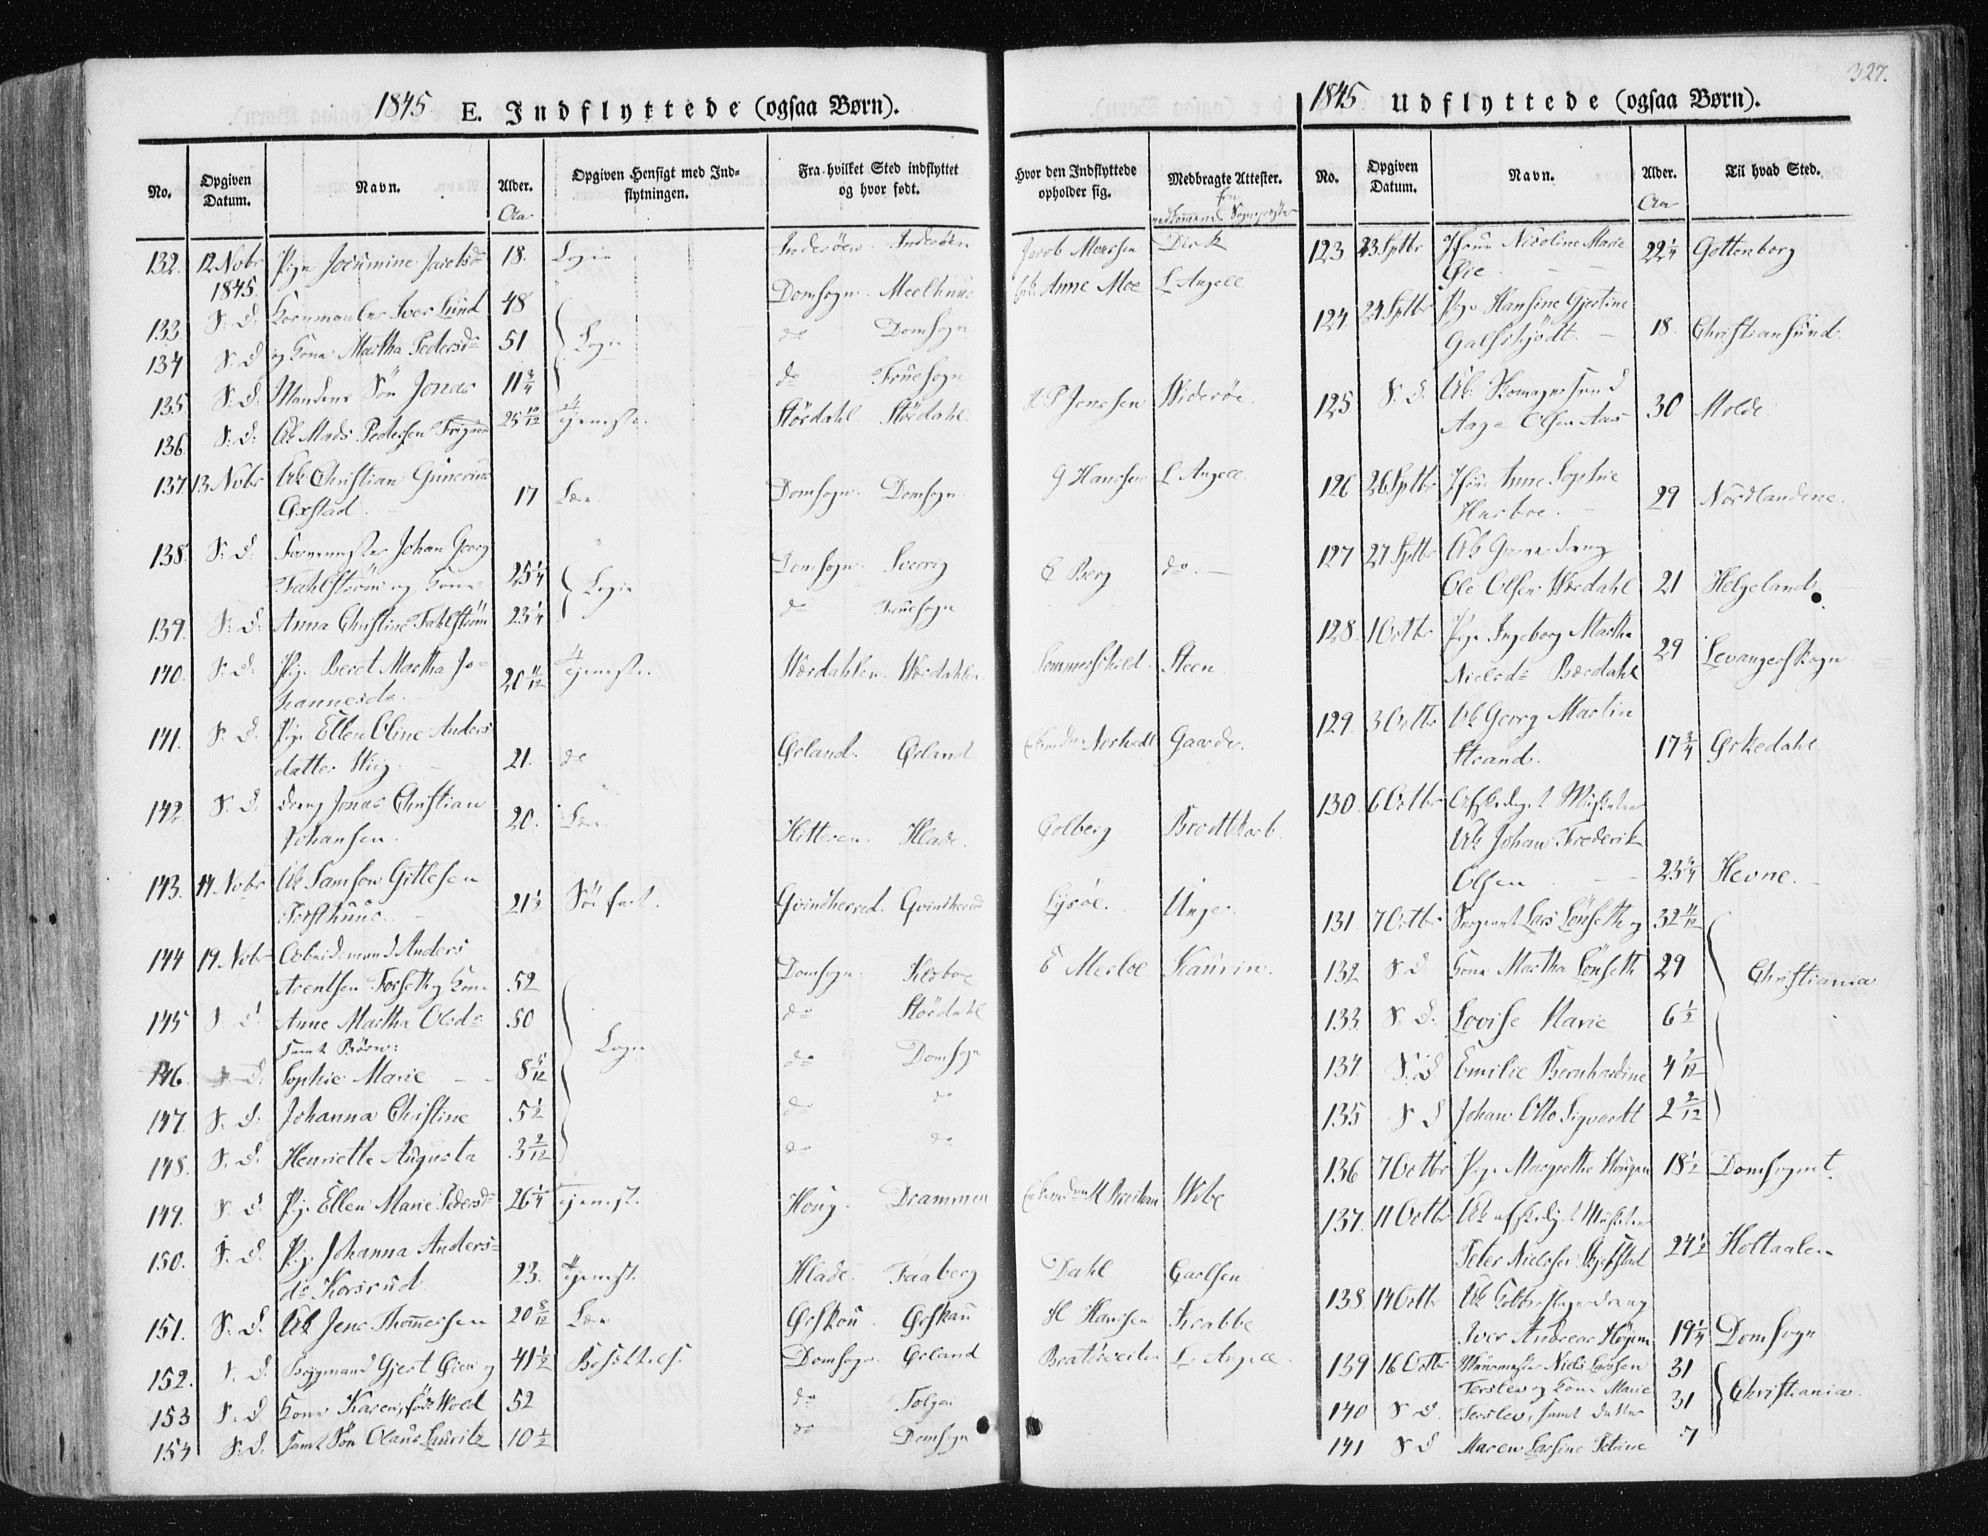 327.
1845 E. Indflyttede (ogsaa Børn).
No. Opgiven Datum. Navn. Alder. Opgiven Hensigt med Indflytningen. Fra hvilket Sted indflyttet og hvor født. Hvor den Indflyttede opholder sig. Medbragte Attester.
Aar
132. 12 Nobr 1845. Pige Jocumine Jacobsd 18. Logis Inderöen Inderöen Jacob Monsen Dirk
133 S. D. Kornmaaler Iver Lund 48 Domsogn Meelhuus Anne Moe L Angell
134 S. D. og Kone Martha Pedersd 51 Logis do Domsogn
135 S. D. Mandens Sön Jonas 11 3/4 do Fruesogn
136. S. D. Uk Mads Pedersen 25 10/12 Tjeneste Stördahl Stördahl H P Jenssen Widerøe.
137 13 Nobr Uk Christian Gunerius
Oxstad 17 Lære Domsogn Domsogn G Hansen L Angell
138. S. D. Johan Georg
Fahlström og Kone 25 1/4 Logis Domsogn Sverrig E Berg do
139. S. D. Anna Christine Fahlström 23 1/4 do Fruesogn
140. S. D. Pige Beret Martha Jo-
hannesdr 20 11/12 Tjeneste Wærdahlen Wærdahlen Sommerschild Steen
141. S. D. Pige Ellen Oline Anders
datter Wiig 21. do Ørland Ørland Norstedt Gaarder
142 S. D. Dreng Jonas Christian
Johansen 20. Lære Hitteren Hlade. Colberg Brodtkorb
143. 14 Nobr Uk Samson Gitlesen
21 1/2 Söefart Qvindherred Qvindherred Lysöe Unger
144 14 Nobr Arbeidsmand Anders
Arentsen Forseth og Kone 52 Domsogn E Merloe Kaurin.
145 S. D. Anne Martha Olsdr 50 do Stördahl
samt Börn:
146. S. D. Sophie Marie 8 5/12 Logis do Domsogn
147. S. D. Johanna Christine 5 1/2 do do
148. S. D. Henriette Augusta 3 2/12 do do
149. S. D. Pige Ellen Marie Pedersdr 26 1/4 Tjenest. Höug Drammen Wibe
150. S. D. Pige Johanna Anders-
dr Korsrud 23. Tjenest. Hlade Faaberg Dahl Carlsen
151. S. D. Uk Jens Thomesen 20 8/12 Lære Ørskou Ørskau H Hansen Krabbe
152. S. D. Brygmand Gjert Öien og 41 1/2 Bosættels. Domsogn Ørland Bratörveiten L Angell
153 S. D. Kone Karen, föd Wold 52 do Tolgen
154 S. D. samt Sön Olaus Lauritz 10 1/2 do Domsogn
1845 Udflyttede (ogsaa Børn).
No. Opgiven Datum. Navn. Alder. Til hvad Sted.
Aar
123 23 Sptbr Jfru Nicoline Marie
Öie 22 1/4 Gottenborg
124 24 Sptbr Pige Hansine Gjertine
Galtskjödt 18. Christiansund.
125 S. D. Uk Skomagersvend
Aage Olsen Aas 30 Molde
126 26 Sptbr Jfru Anne Sophie
Harboe. 29 Nordlandene.
127 27 Sptbr Uk
Ole Olsen Wærdahl 21 Helgeland
128 1 Octbr Pige Ingeborg Martha
Nielsdr Bærdahl 29 Levanger Skogn
129. 3 Octbr Uk Georg Martin
Strand. 17 3/4 Ørkedahl
130. 6 Octbr Afskediget Musketeer
Uk Johan Frederik
Olsen 23 3/4 Hevne.
131 7 Octbr Sergeant Lars Lönseth og 32 11/12
132 S. D. Kone Martha Lönseth 29 Christiania
133 S. D. Lovise Marie 6 1/2
134 S. D Emilie Bernhardine 4 2/12
135 S D Johan Otto Sigvardt 2 2/12
136 7 Octbr Pige Margrethe Haugan 18 1/2 Domsognet.
137. 11 Octbr Uk afskediget Musketeer
Peter Nielsen 24 1/2 Holtaalen
138 14 Octbr Uk
Iver Andreas 19 1/4 Domsogn
139 16 Octbr Muurmester Niels Larssen 31
Terslev og Kone Marie
140 S D. Terslev, samt Datter 31 Christiania.
141 S D Maren Larsine Petrine 7